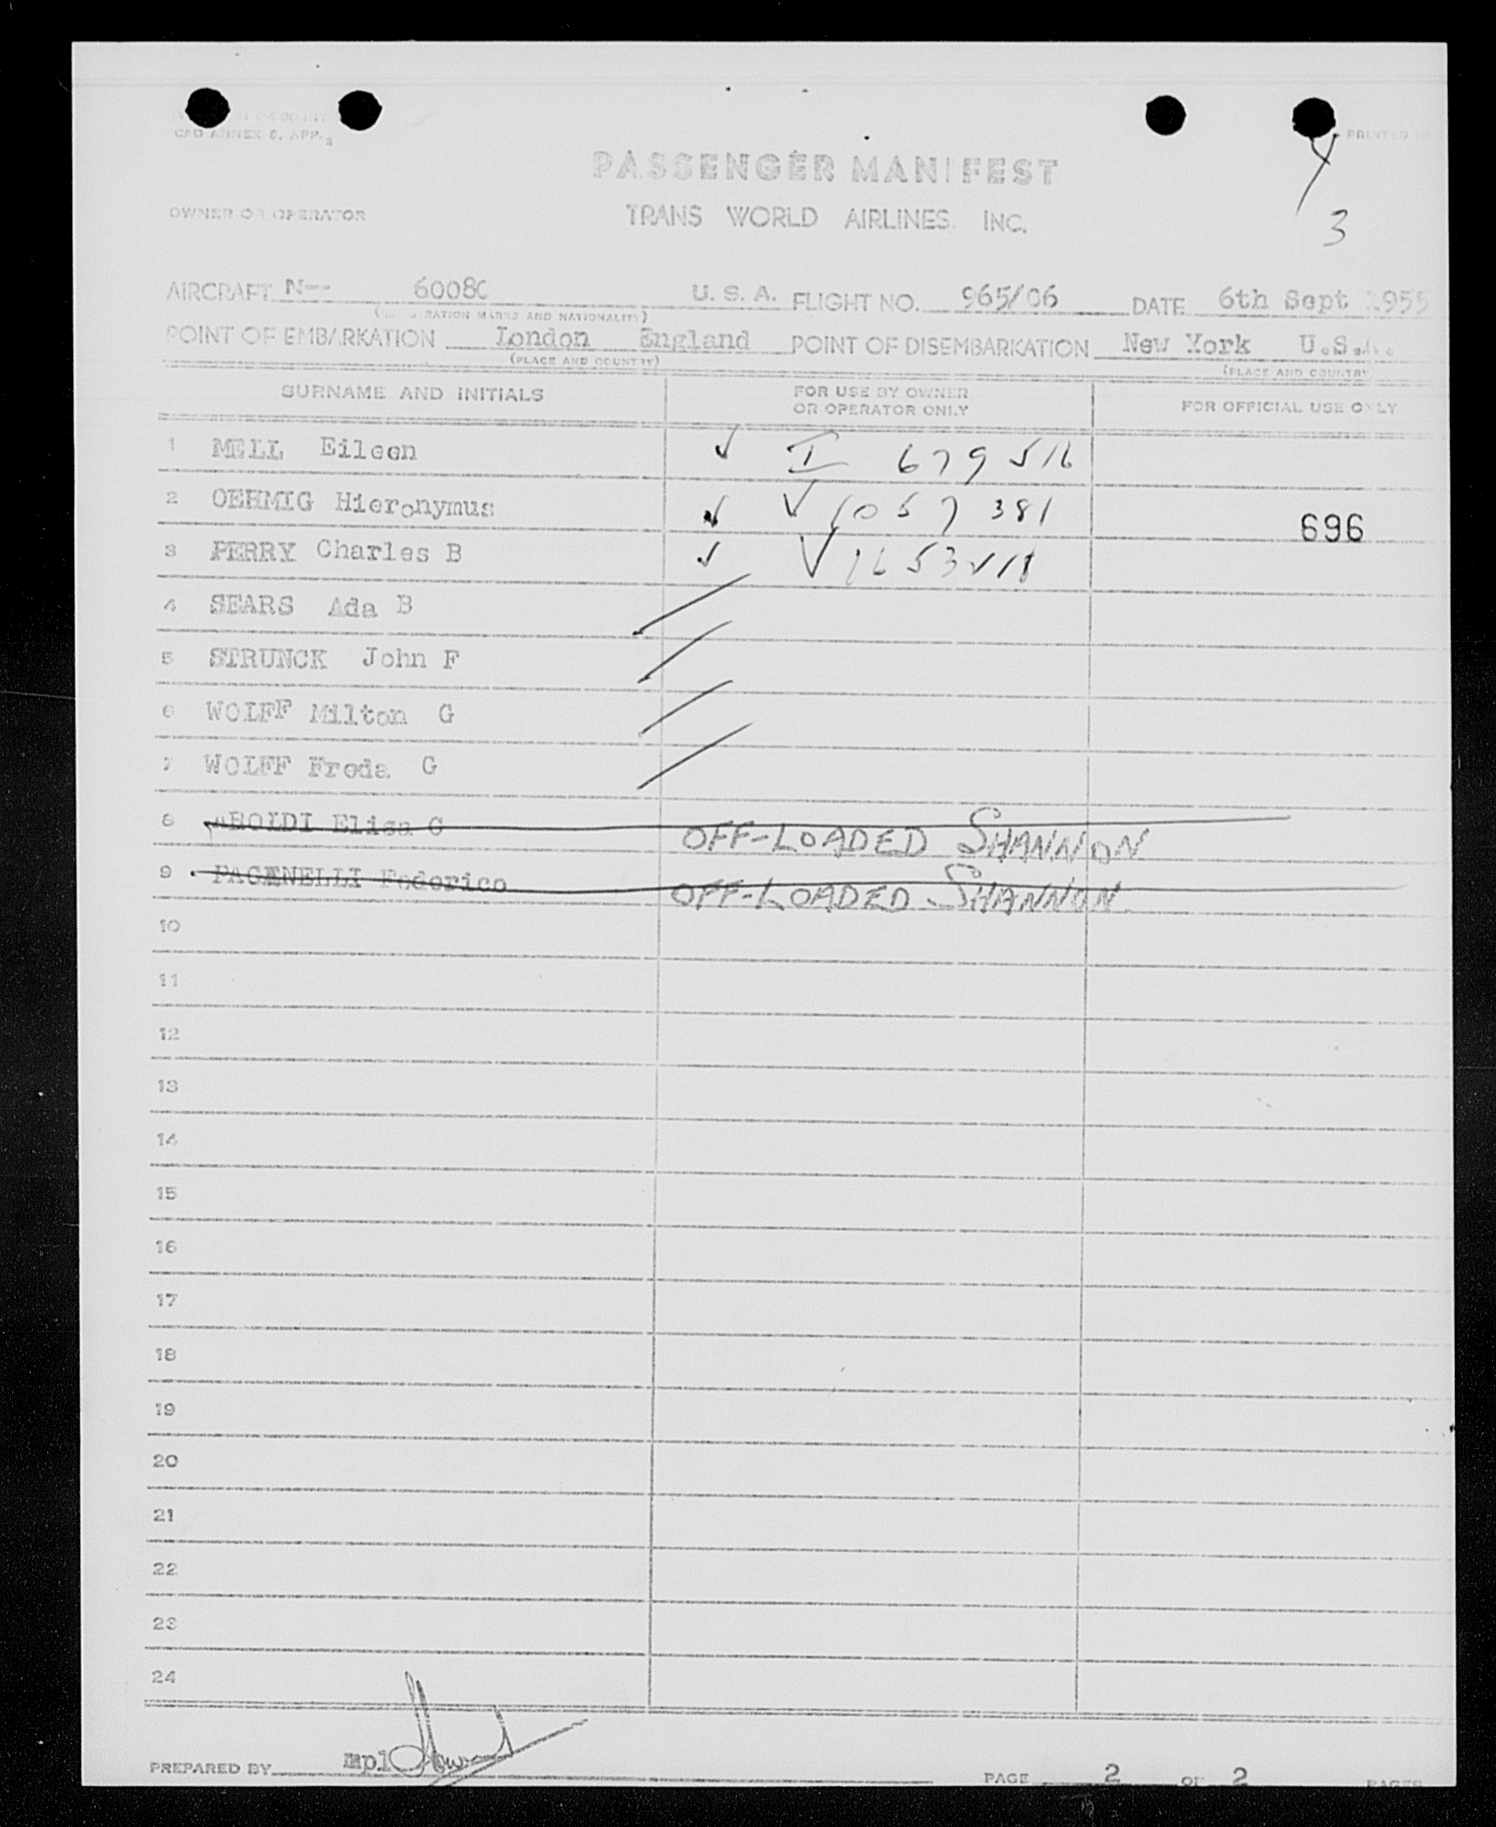 CAO ANNEX 8, APP. 3
PRINTED IN
PASSENGER MANIFEST
OWNER OR OPERATOR TRANS WORLD AIRLINES, INC.
3
AIRCRAFT N-- 6008C U. S. A. FLIGHT NO. 965/06 DATE 6th Sept 1955
(REGISTRATION MARKS AND NATIONALITY)
POINT OF EMBARKATION London England POINT OF DISEMBARKATION New York U.S.A.
(PLACE AND COUNTRY) (PLACE AND COUNTRY)
SURNAME AND INITIALS FOR USE BY OWNER OR OPERATOR ONLY FOR OFFICIAL USE ONLY
1 MELL Eileen ✓ I 679 516
2 OEHMIG Hieronymus ✓ V 1057 381
696
3 PERRY Charles B ✓ V
4 SEARS Ada B
5 STRUNCK John F
6 WOLFF Milton G
7 WOLFF Freda G
8 Elisa G OFF-LOADED SHANNON
9 PAGENELLI Federico OFF-LOADED SHANNON
10
11
12
13
14
15
16
17
18
19
20
21
22
23
24
PREPARED BY mpl PAGE 2 OF 2 PAGES